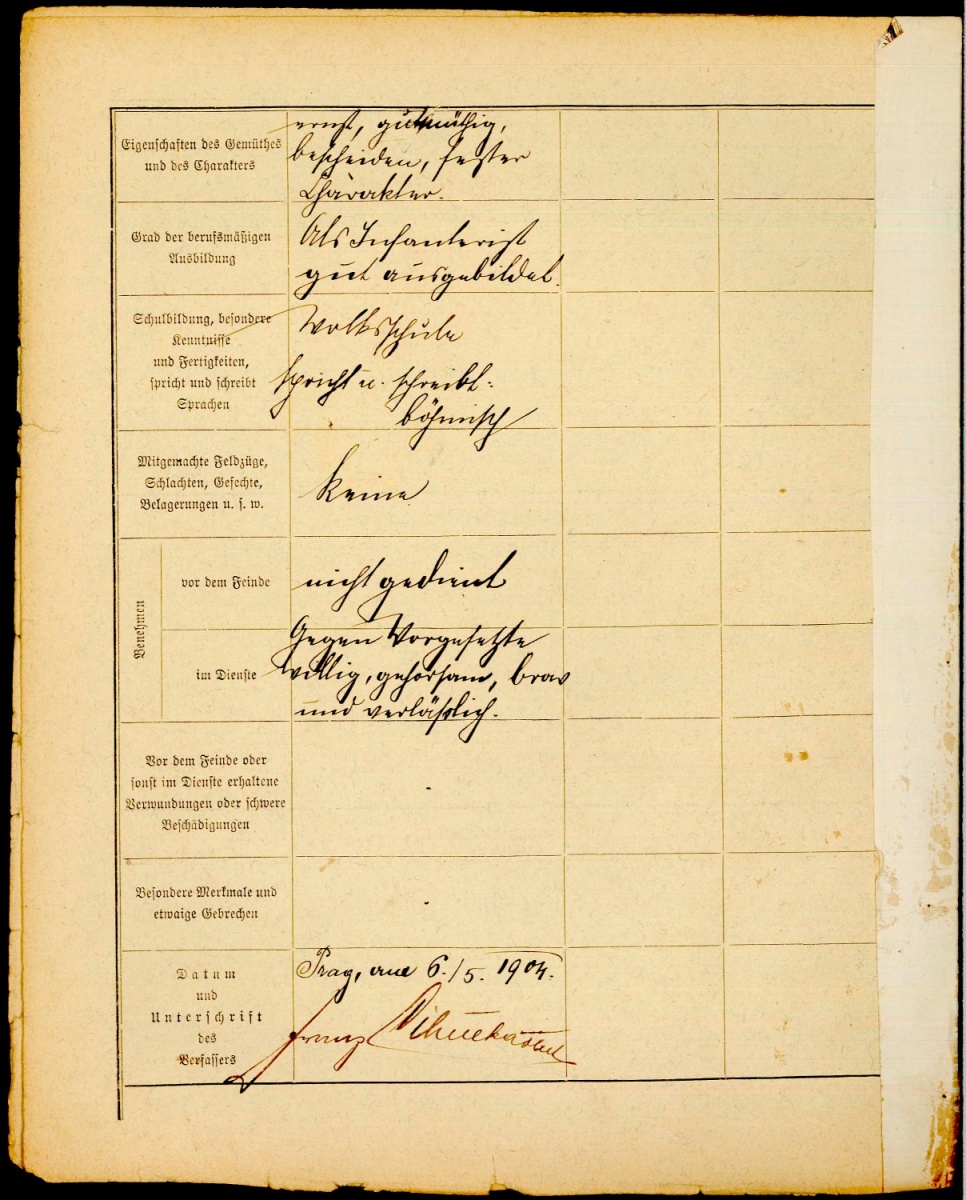 Eigenschaften des Gemüthes
und des Charakters
ernst, gutmüthig,
bescheiden, fester
Charakter.
Grad der berufsmäßigen
Ausbildung
Als Infanterist
gut ausgebildet.
Schulbildung, besondere
Kenntnisse
und Fertigkeiten,
spricht und schreibt
Sprachen
Volksschule
spricht u. schreibt
böhmisch
Mitgemachte Feldzüge,
Schlachten, Gefechte,
Belagerungen u. s. w.
Keine
Benehmen
vor dem Feinde
nicht gedient
im Dienste
Gegen Vorgesetzte
willig, gehorsam, brav
und verläßlich.
Vor dem Feinde oder
sonst im Dienste erhaltene
Verwundungen oder schwere
Beschädigungen
Besondere Merkmale und
etwaige Gebrechen
Datum
und
Unterschrift
des
Verfassers
Prag, am 6./5. 1904.
Franz